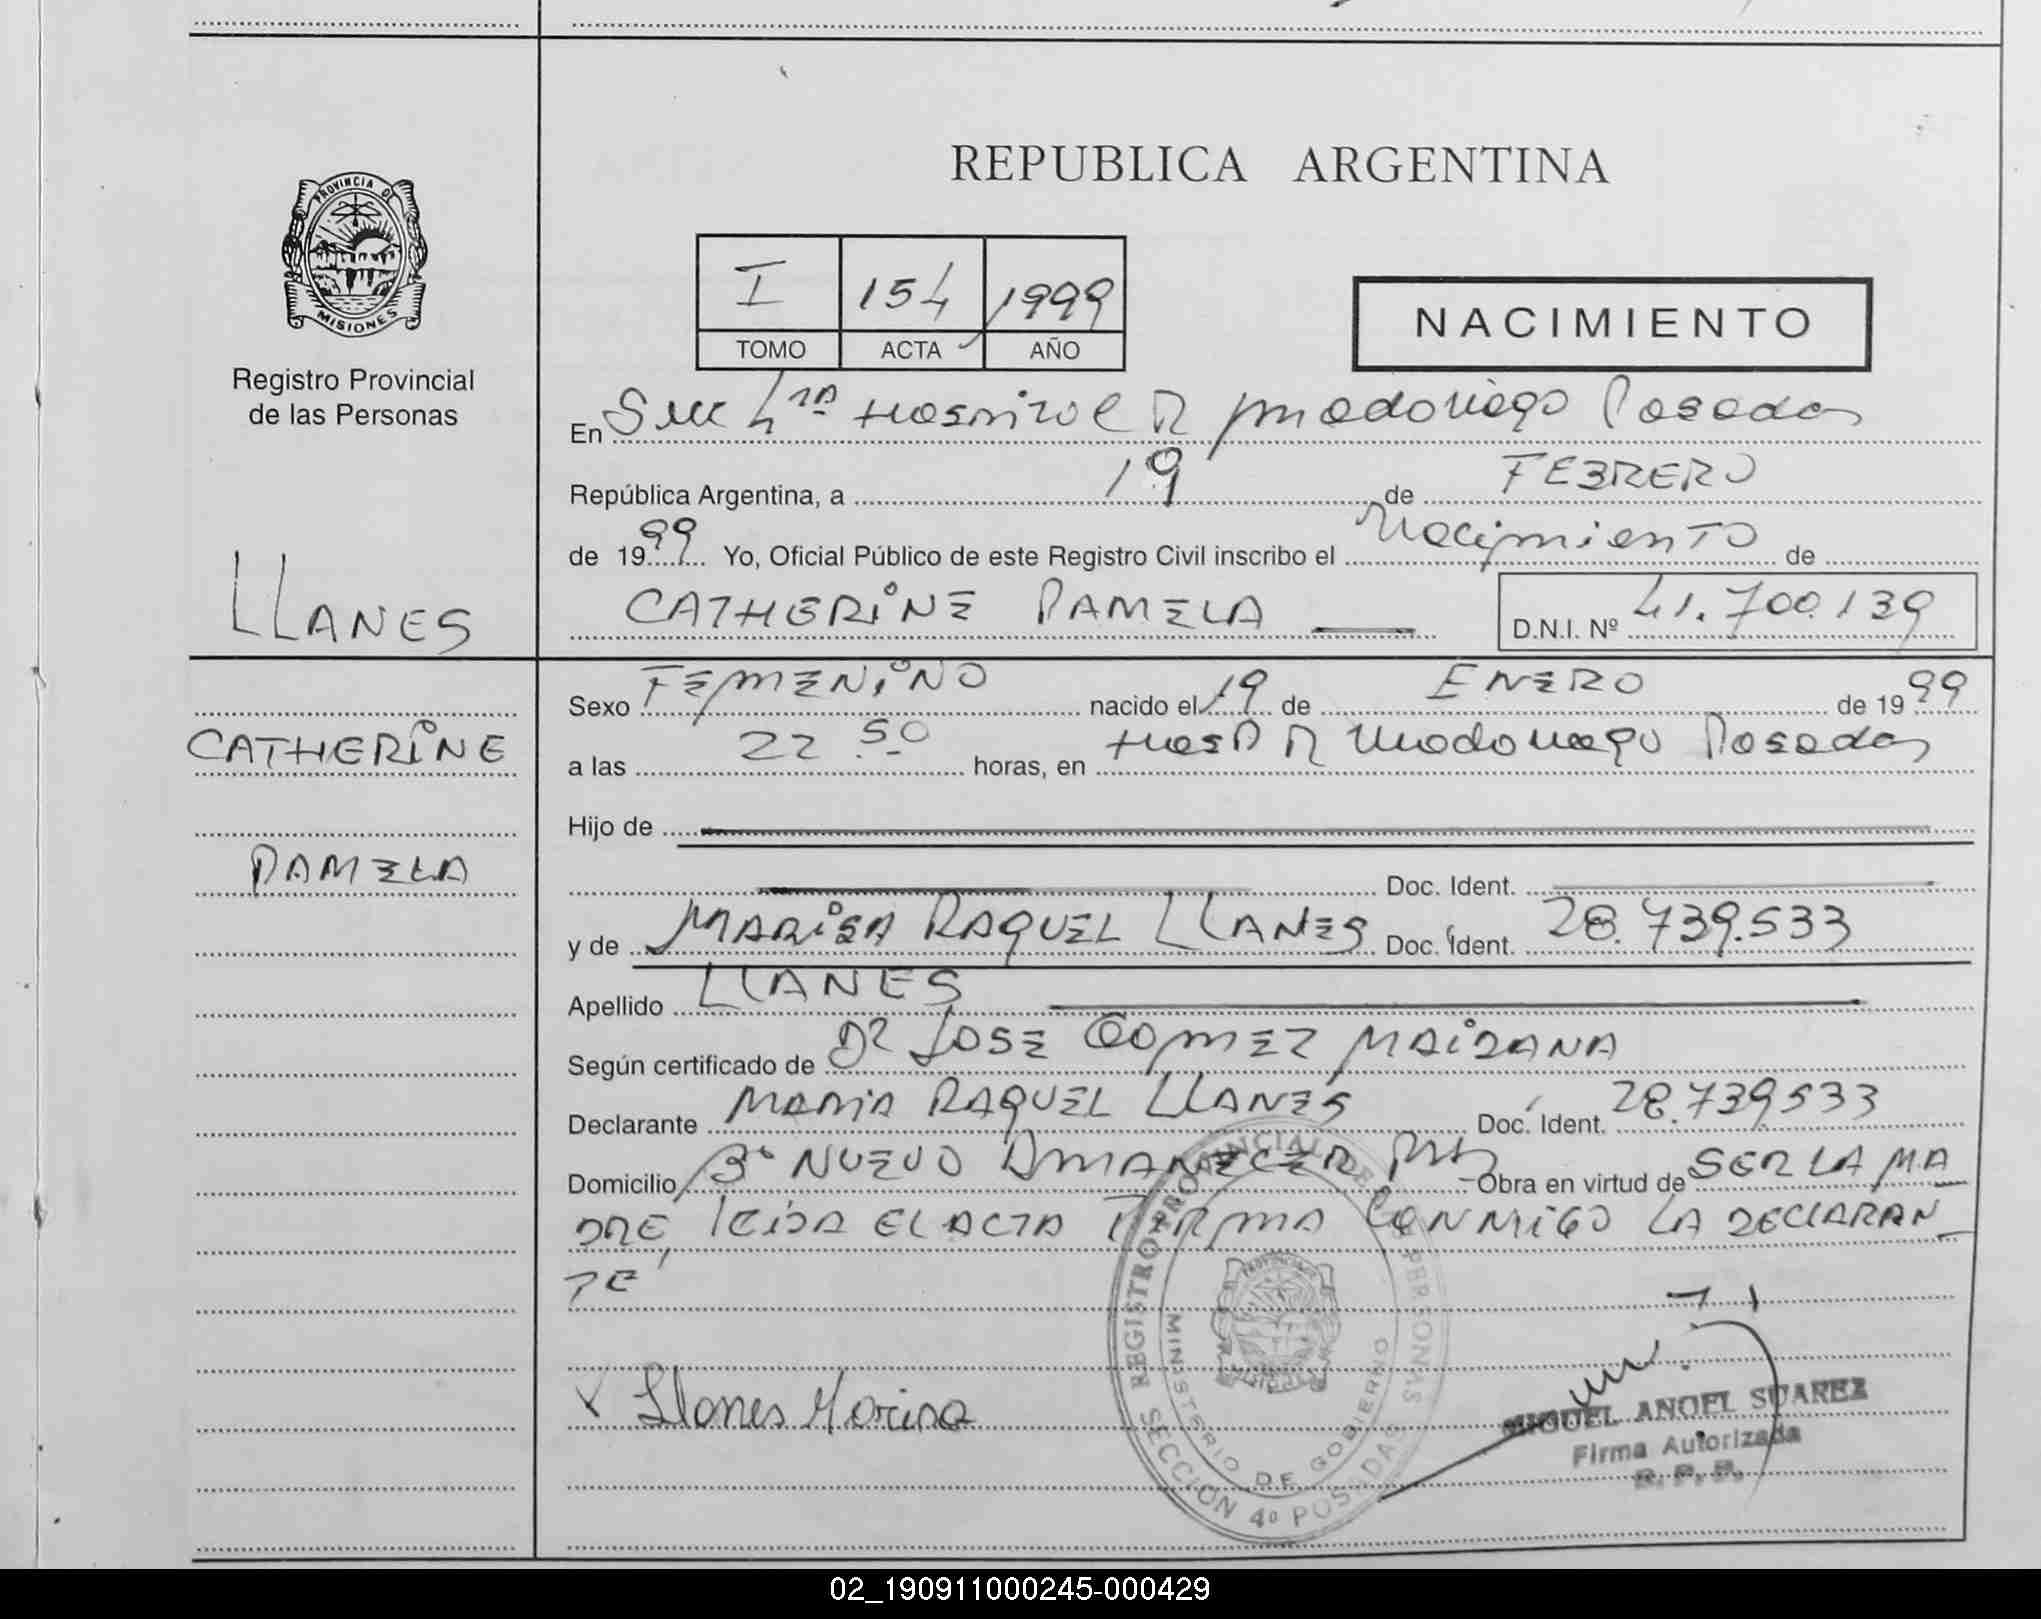 REPUBLICA ARGENTINA
PROVINCIA DE
MISIONES
Registro Provincial
de las Personas
I 154 1999
TOMO ACTA AÑO
NACIMIENTO
En Secc 4ta Hospital R Madariaga Posadas
República Argentina, a 19 de FEBRERO
de 1999 Yo, Oficial Público de este Registro Civil inscribo el Nacimiento de
CATHERINE PAMELA D.N.I. Nº 41.700.139
LLANES
Sexo FEMENINO nacido el 19 de ENERO de 1999
CATHERINE
a las 22 50 horas, en Hosp R Madariaga Posadas
Hijo de
PAMELA
Doc. Ident.
y de MARISA RAQUEL LLANES Doc. Ident. 28.739.533
Apellido LLANES
Según certificado de Dr JOSE GOMEZ MAIDANA
Declarante RAQUEL LLANES Doc. Ident. 28.739.533
Domicilio Bº NUEVO AMANECER Obra en virtud de SER LA MA
DRE, leida EL ACTA FIRMA CONMIGO LA DECLARAN
TE
Llanes Marisa
REGISTRO PROVINCIAL DE LAS PERSONAS
MINISTERIO DE GOBIERNO
SECCION 4º POSADAS
MIGUEL ANGEL SUAREZ
Firma Autorizada
R. P. P.
02_190911000245-000429